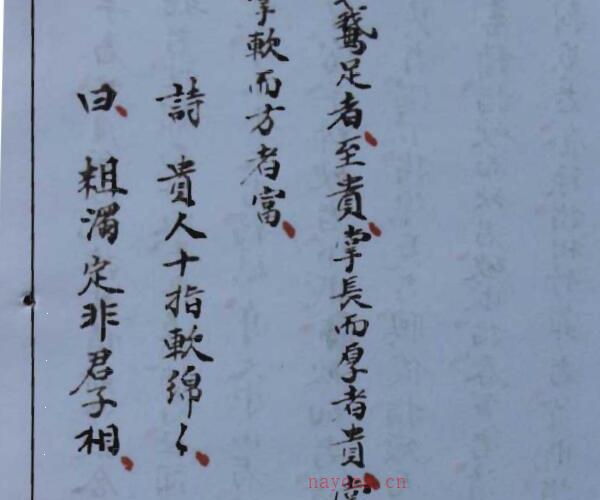 鵝足者至貴掌長而厚者貴
掌軟而方者富
詩 貴人十指軟綿〻
曰 粗濁定非君子相
nayona.cn